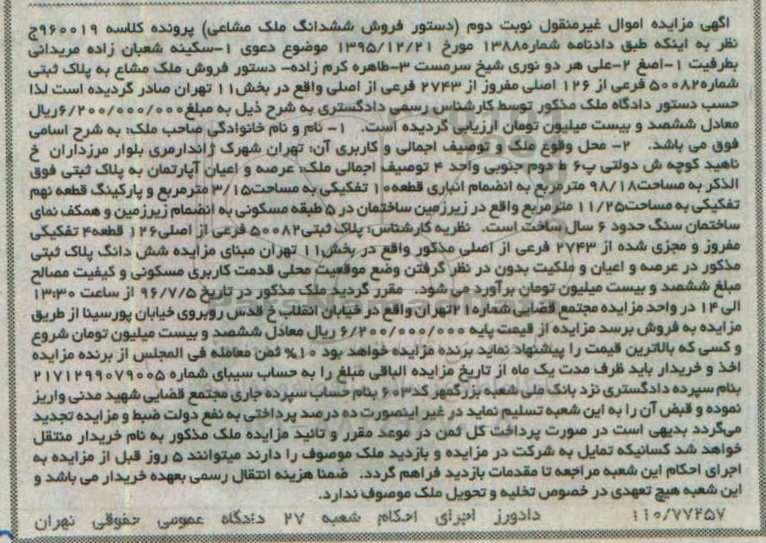 اگهی مزایده اموال غیرمنقول نوبت دوم (دستور فروش ششدانگ ملک مشاعی) پرونده کلاسه ۹۶۰۰۱۹ج
نظر به اینکه طبق دادنامه شماره۱۳۸۸۰ مورخ ۱۳۹۵/۱۲/۲۱ موضوع دعوی ۱-سکینه شعبان زاده مریدانی
بطرفیت ۱-اصغ ۲-علی هر دو نوری شیخ سرمست ۳-طاهره کرم زاده- دستور فروش ملک مشاع به پلاک ثبتی
شماره۵۰۰۸۲ فرعی از ۱۲۶ اصلی مفروز از ۲۷۴۳ فرعی از اصلی واقع در بخش۱۱ تهران صادر گردیده است لذا
حسب دستور دادگاه ملک مذکور توسط کارشناس رسمی دادگستری به شرح ذیل به مبلغ۶/۲۰۰/۰۰۰/۰۰۰ریال
معادل ششصد و بیست میلیون تومان ارزیابی گردیده است. ۱- نام و نام خانوادگی صاحب ملک: به شرح اسامی
فوق می باشد. ۲- محل وقوع ملک و توصیف اجمالی و کاربری آن: تهران شهرک ژاندارمری بلوار مرزداران خ
ناهید کوچه ش دولتی پ۶ ط دوم جنوبی واحد ۴ توصیف اجمالی ملک: عرصه و اعیان آپارتمان به پلاک ثبتی فوق
الذکر به مساحت۹۸/۱۸ مترمربع به انضمام انباری قطعه۱۰ تفکیکی به مساحت۳/۱۵ مترمربع و پارکینگ قطعه نهم
تفکیکی به مساحت۱۱/۲۵ مترمربع واقع در زیرزمین ساختمان در ۵ طبقه مسکونی به انضمام زیرزمین و همکف نمای
ساختمان سنگ حدود ۶ سال ساخت است. نظریه کارشناس: پلاک ثبتی۵۰۰۸۲ فرعی از اصلی۱۲۶ قطعه۴ تفکیکی
مفروز و مجزی شده از ۲۷۴۳ فرعی از اصلی مذکور واقع در بخش۱۱ تهران مبنای مزایده شش دانگ پلاک ثبتی
مذکور در عرصه و اعیان و ملکیت بدون در نظر گرفتن وضع موقعیت محلی قدمت کاربری مسکونی و کیفیت مصالح
مبلغ ششصد و بیست میلیون تومان برآورد می شود. مقرر گردید ملک مذکور در تاریخ ۹۶/۷/۵ از ساعت ۱۳:۳۰
الی ۱۴ در واحد مزایده مجتمع قضایی شماره۲۱تهران واقع در خیابان انقلاب خ قدس روبروی خیابان پورسینا از طریق
مزایده به فروش برسد مزایده از قیمت پایه ۶/۲۰۰/۰۰۰/۰۰۰ ریال معادل ششصد و بیست میلیون تومان شروع
و کسی که بالاترین قیمت را پیشنهاد نماید برنده مزایده خواهد بود ۱۰% ثمن معامله فی المجلس از برنده مزایده
اخذ و خریدار باید ظرف مدت یک ماه از تاریخ مزایده الباقی مبلغ را به حساب سیبای شماره ۲۱۷۱۲۹۹۰۷۹۰۰۵
بنام سپرده دادگستری نزد بانک ملی شعبه بزرگمهر کد۶۰۳ بنام حساب سپرده جاری مجتمع قضایی شهید مدنی واریز
نموده و قبض آن را به این شعبه تسلیم نماید در غیر اینصورت ده درصد پرداختی به نفع دولت ضبط و مزایده تجدید
می‌گردد بدیهی است در صورت پرداخت کل ثمن در موعد مقرر و تائید مزایده ملک مذکور به نام خریدار منتقل
خواهد شد کسانیکه تمایل به شرکت در مزایده و بازدید ملک موصوف را دارند میتوانند ۵ روز قبل از مزایده به
اجرای احکام این شعبه مراجعه تا مقدمات بازدید فراهم گردد. ضمنا هزینه انتقال رسمی بعهده خریدار می باشد و
این شعبه هیچ تعهدی در خصوص تخلیه و تحویل ملک موصوف ندارد.
۱۱۰/۷۷۲۵۷ دادورز اجرای احکام شعبه ۲۷ دادگاه عمومی حقوقی تهران